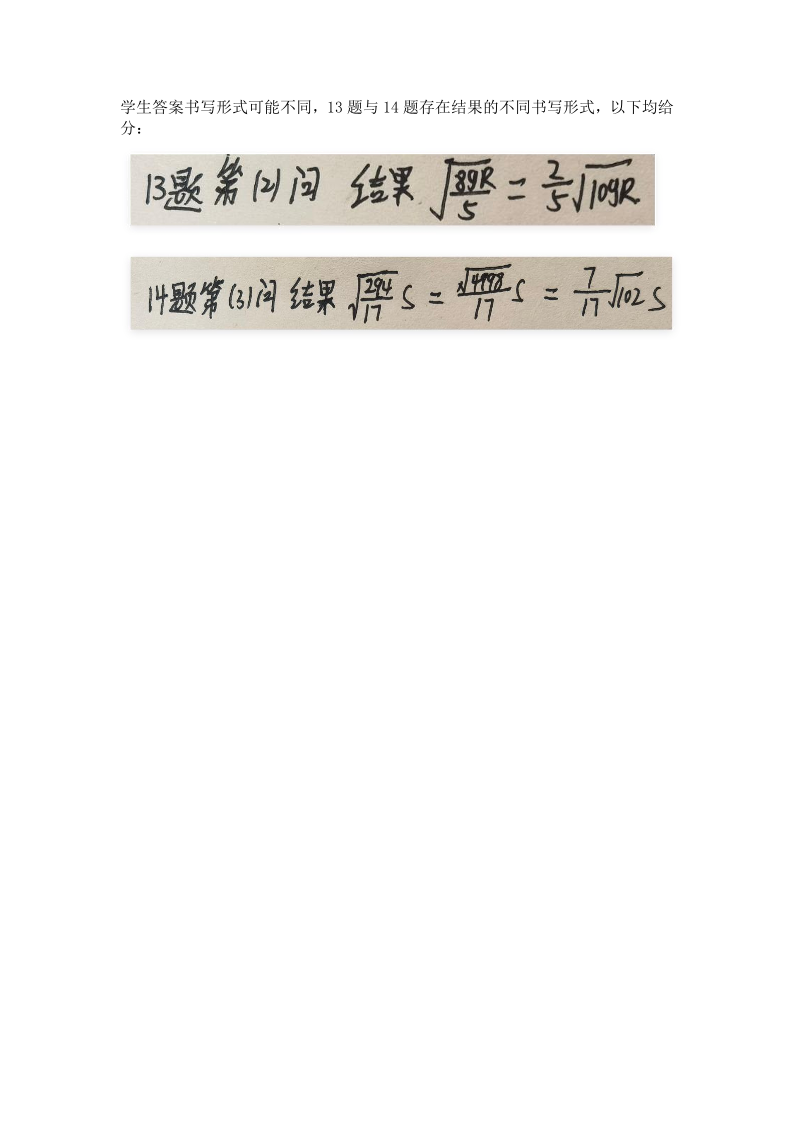 学生答案书写形式可能不同，13 题与 14 题存在结果的不同书写形式，以下均给
分：
13题 第(2)问 结果 √(8gR/5) = 2/5√(10gR)
14题第(3)问 结果 √(294/17) S = √4998/17 S = 7/17√102 S